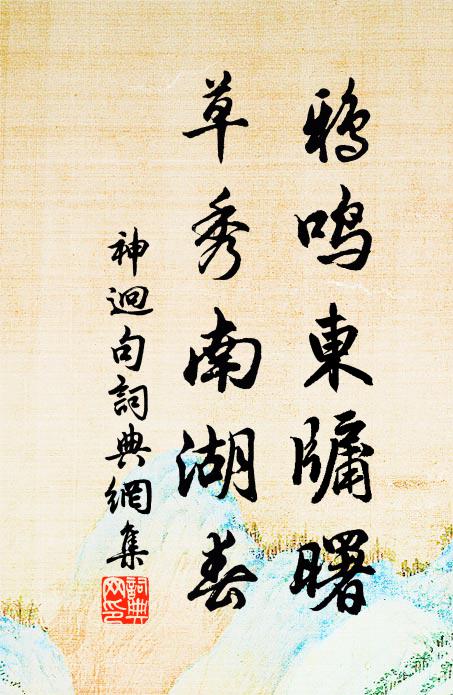 鴉鳴東牖曙
草秀南湖春
神迥句詞典網集
詞典